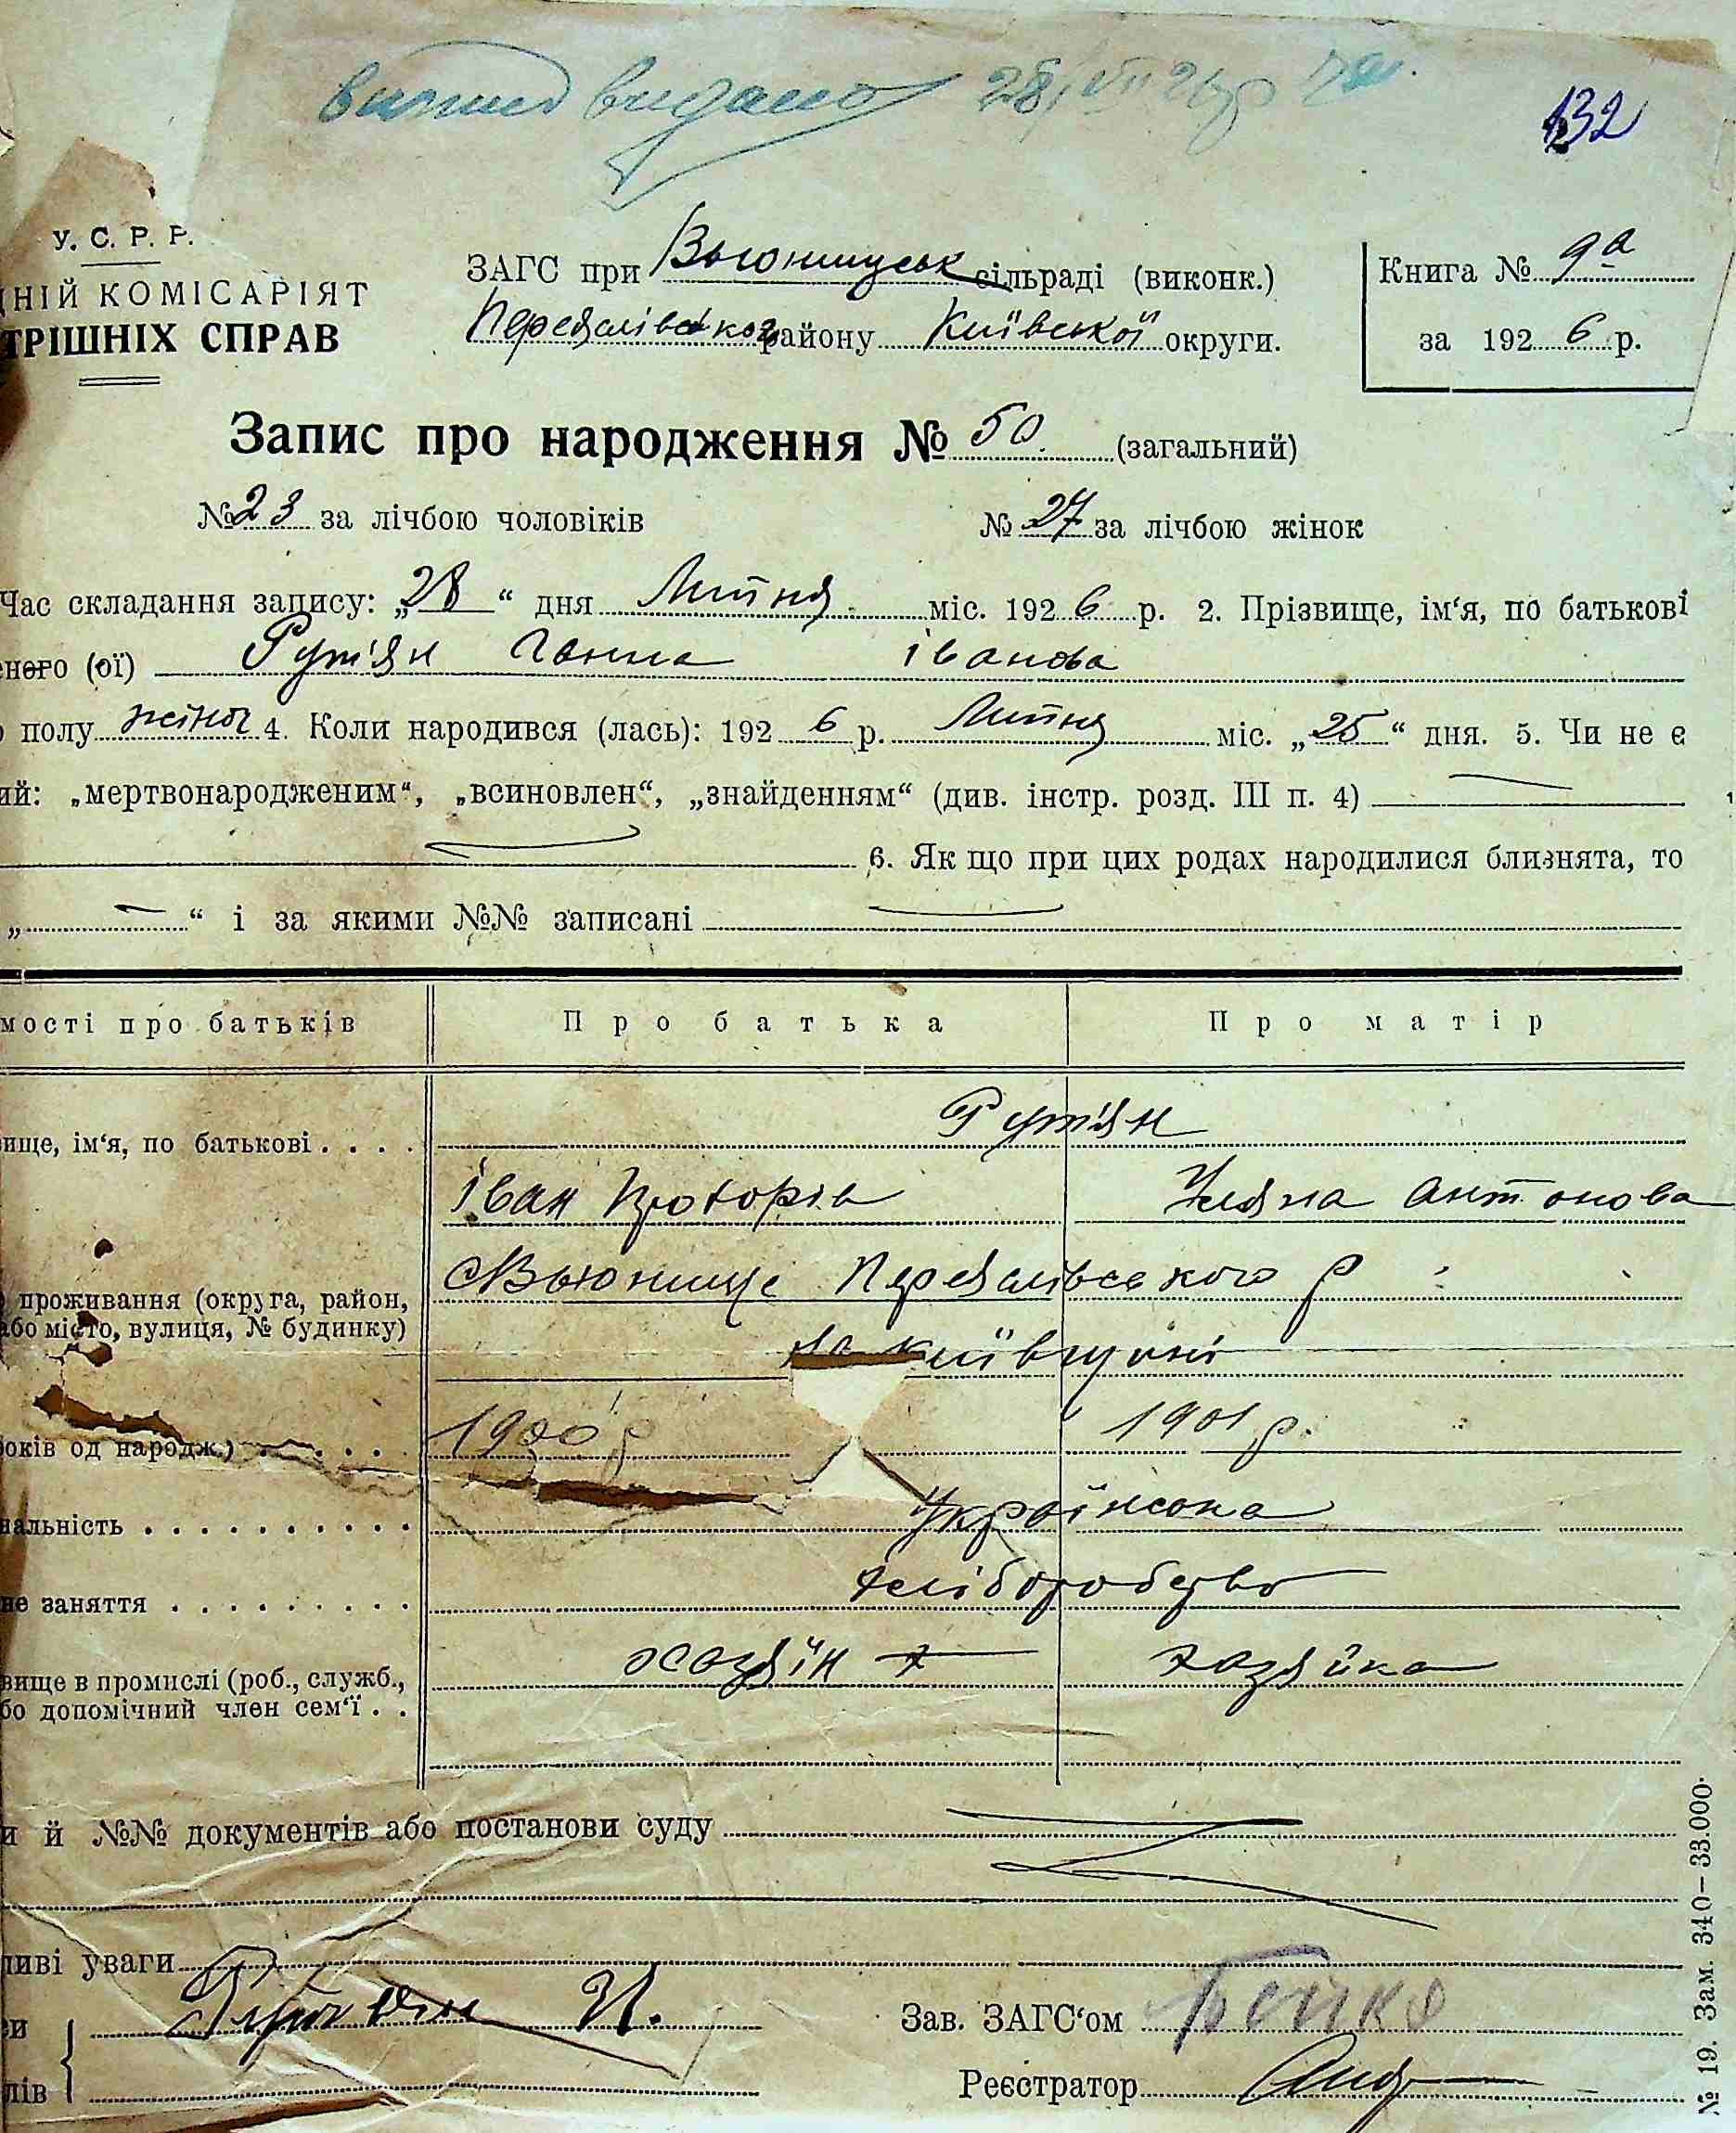 випис видано 28/VII 26 р
132
У. С. Р. Р.
ДНІЙ КОМІСАРІЯТ
ТРІШНІХ СПРАВ
ЗАГС при Вьюнищськ сільраді (виконк.)
Переяслівськог району Київської округи.
Книга № 9а
за 192 6 р.
Запис про народження № 50. (загальний)
№ 23 за лічбою чоловіків
№ 27 за лічбою жінок
Час складання запису: „28“ дня Липня міс. 192 6 р. 2. Прізвище, ім‘я, по батькові
еного (ої) Рут'ян Ганна Іванова
полу жіноч 4. Коли народився (лась): 192 6 р. Липня міс. „25“ дня. 5. Чи не є
ий: „мертвонародженим“, „всиновлен“, „знайденням“ (див. інстр. розд. III п. 4)
6. Як що при цих родах народилися близнята, то
„ “ і за якими №№ записані
мості про батьків Про батька Про матір
Рут'ян
вище, ім‘я, по батькові . . . .
Іван Прохорів Уляна Антонова
с Вьюнище Переяслівського р
проживання (округа, район,
або місто, вулиця, № будинку)
на Київщині
оків од народж.) . . . . . 1900 р 1901 р.
нальність . . . . . . . . . . Українська
не заняття . . . . . . . . . хліборобство
хазяїн хазяйка
вище в промислі (роб., служб.,
бо допомічний член сем‘ї . .
и й №№ документів або постанови суду
ливі уваги
си
лів
Рутьян И.
Зав. ЗАГС‘ом Бойко
Реєстратор
№ 19. Зам. 340—33.000.